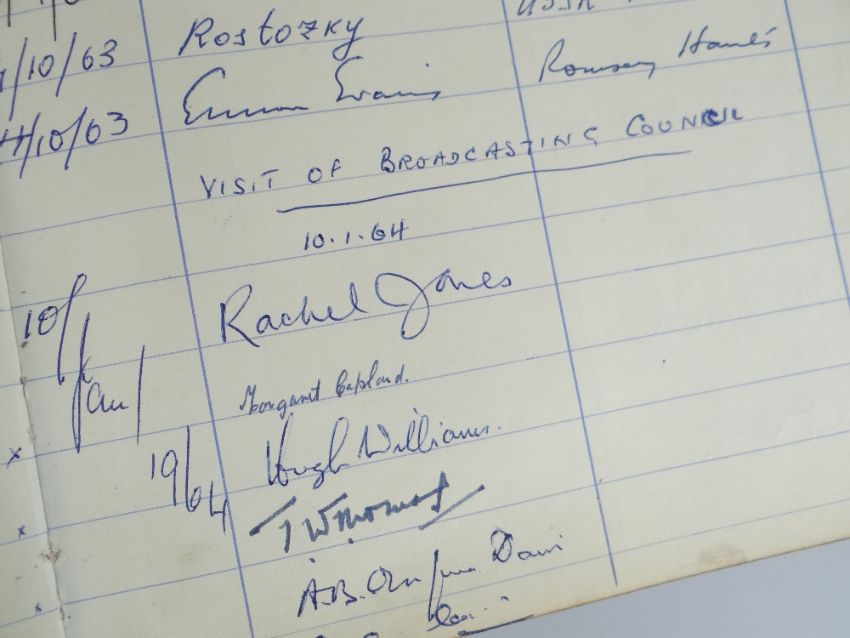 /10/63 Rostozky USSR
14/10/63 Emma Evans Romsey Hants
VISIT OF BROADCASTING COUNCIL
10.1.64
10/ Rachel Jones
Jan/ Margaret
19/64 Hugh Williams.
T. W. Thomas
A.B.